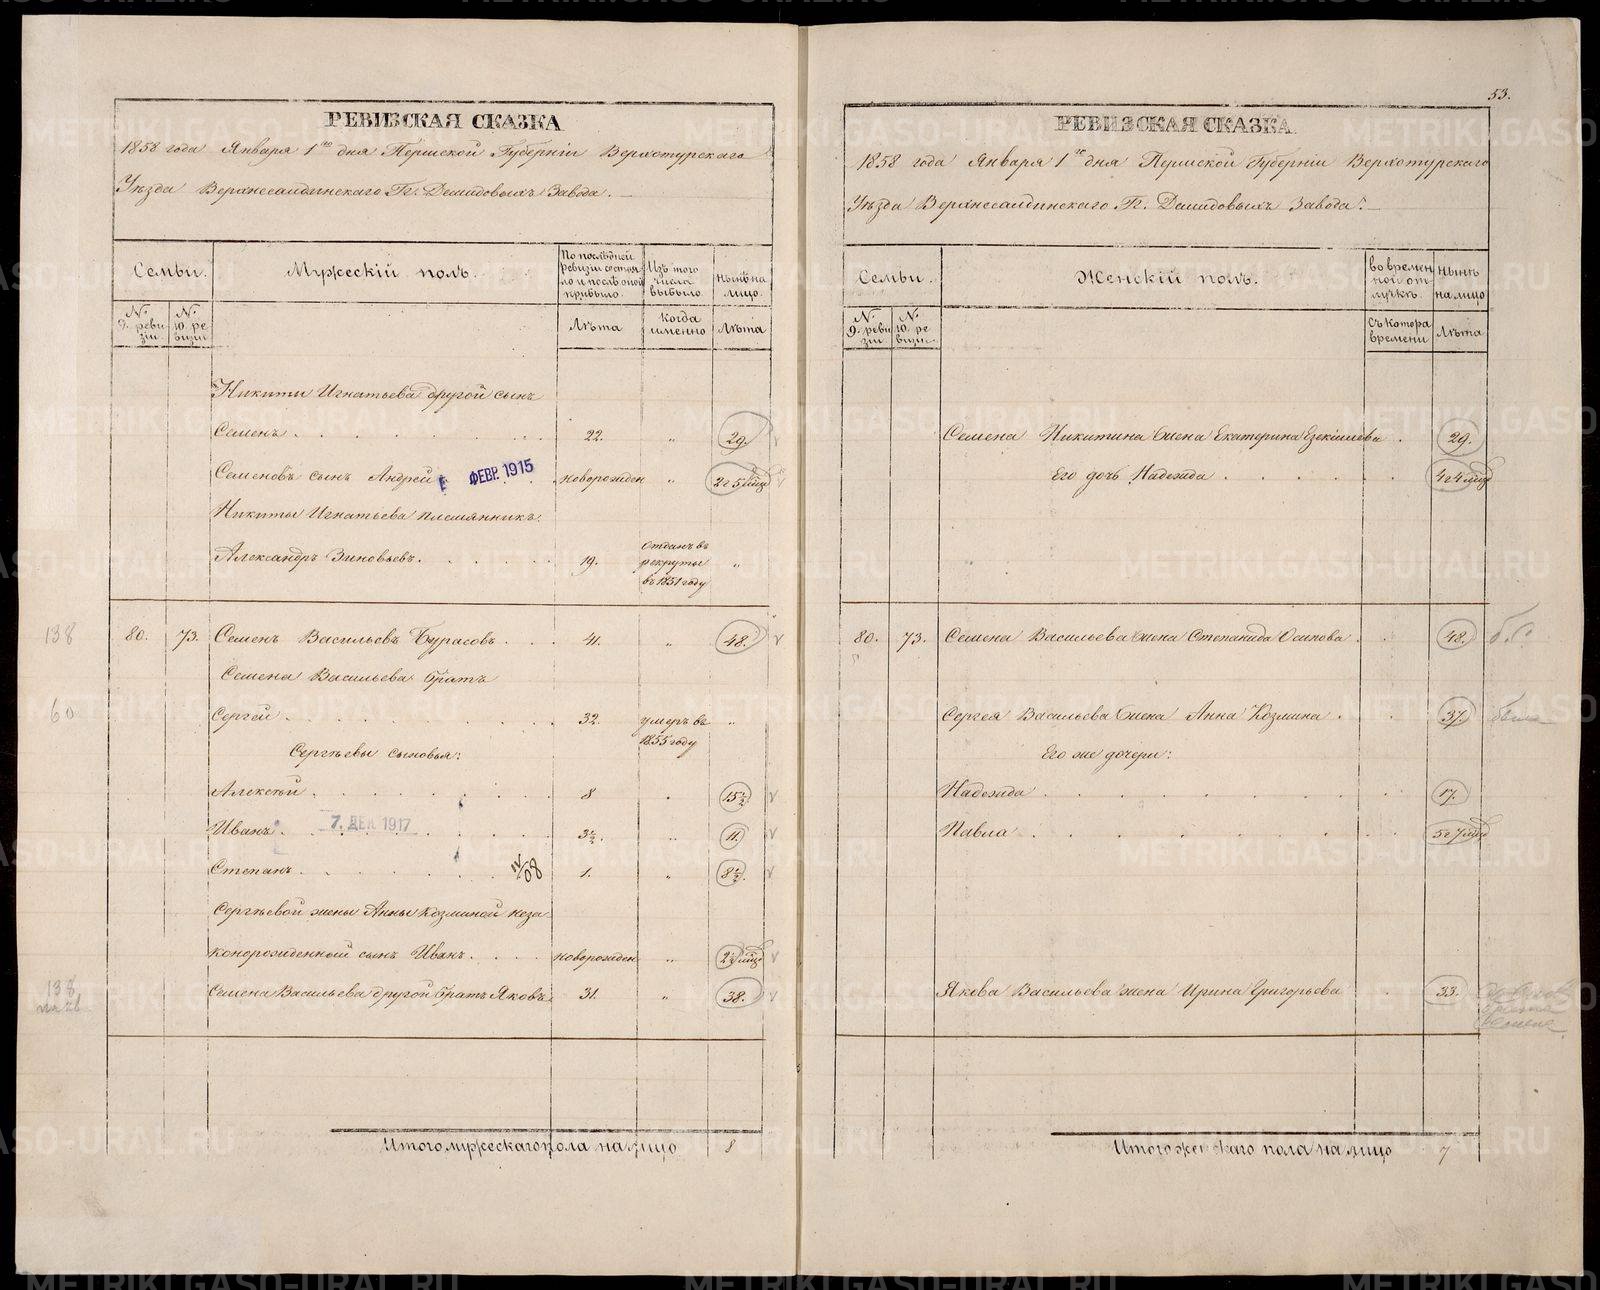 РЕВИЗСКАЯ СКАЗКА
1858 года Января 1го дня Пермской Губерніи Верхотурскаго
Уѣзда Верхнесалдинскаго Гг. Демидовыхъ Завода.
Семьи.
Мужескій полъ.
По послѣдней ревизіи состояло и послѣ оной прибыло.
Изъ того числа выбыло.
Нынѣ на лицо.
№ 9. ревизіи
№ 10. ревизіи
Лѣта
когда именно
Лѣта
Никиты Игнатьева другой сынъ
Семенъ 22. „ 29.
Семеновъ сынъ Андрей ФЕВР. 1915 новорожден „ 2 г 5 мцд
Никиты Игнатьева племянникъ:
Александръ Зиновьевъ. 19. отданъ въ рекруты въ 1851 году „
138 80. 73. Семенъ Васильевъ Бурасовъ 41. „ 48.
Семена Васильева братъ
60 Сергей 32. умеръ въ 1855 году „
Сергѣевы сыновья:
Алексѣй 8 „ 15½
Иванъ 7. ДЕК 1917 3½. „ 11.
Степанъ IV/08 1. „ 8½.
Сергѣевой жены Анны Козминой неза
конорожденный сынъ Иванъ новорожден „
138 Семена Васильева другой братъ Яковъ 31. „ 38.
Итого мужескаго пола на лицо 8
53.
РЕВИЗСКАЯ СКАЗКА
1858 года Января 1го дня Пермской Губерніи Верхотурскаго
Уѣзда Верхнесалдинскаго Гг. Демидовыхъ Завода.
Семьи.
Женскій полъ.
во временной отлучкѣ.
Нынѣ на лицо
№ 9. ревизіи
№ 10. ревизіи
Съ котора времени
Лѣта
Семена Никитина жена Екатерина Езекіилева 29.
Его дочь Надежда 4 г 4 мцд
80. 73. Семена Васильева жена Степанида Осипова 48.
Сергея Васильева жена Анна Козмина 37.
Его же дочери:
Надежда 17.
Павла 5 г 7 мцд
Якова Васильева жена Ирина Григорьева 33.
Итого женскаго пола на лицо 7
METRIKI.GASO-URAL.RU